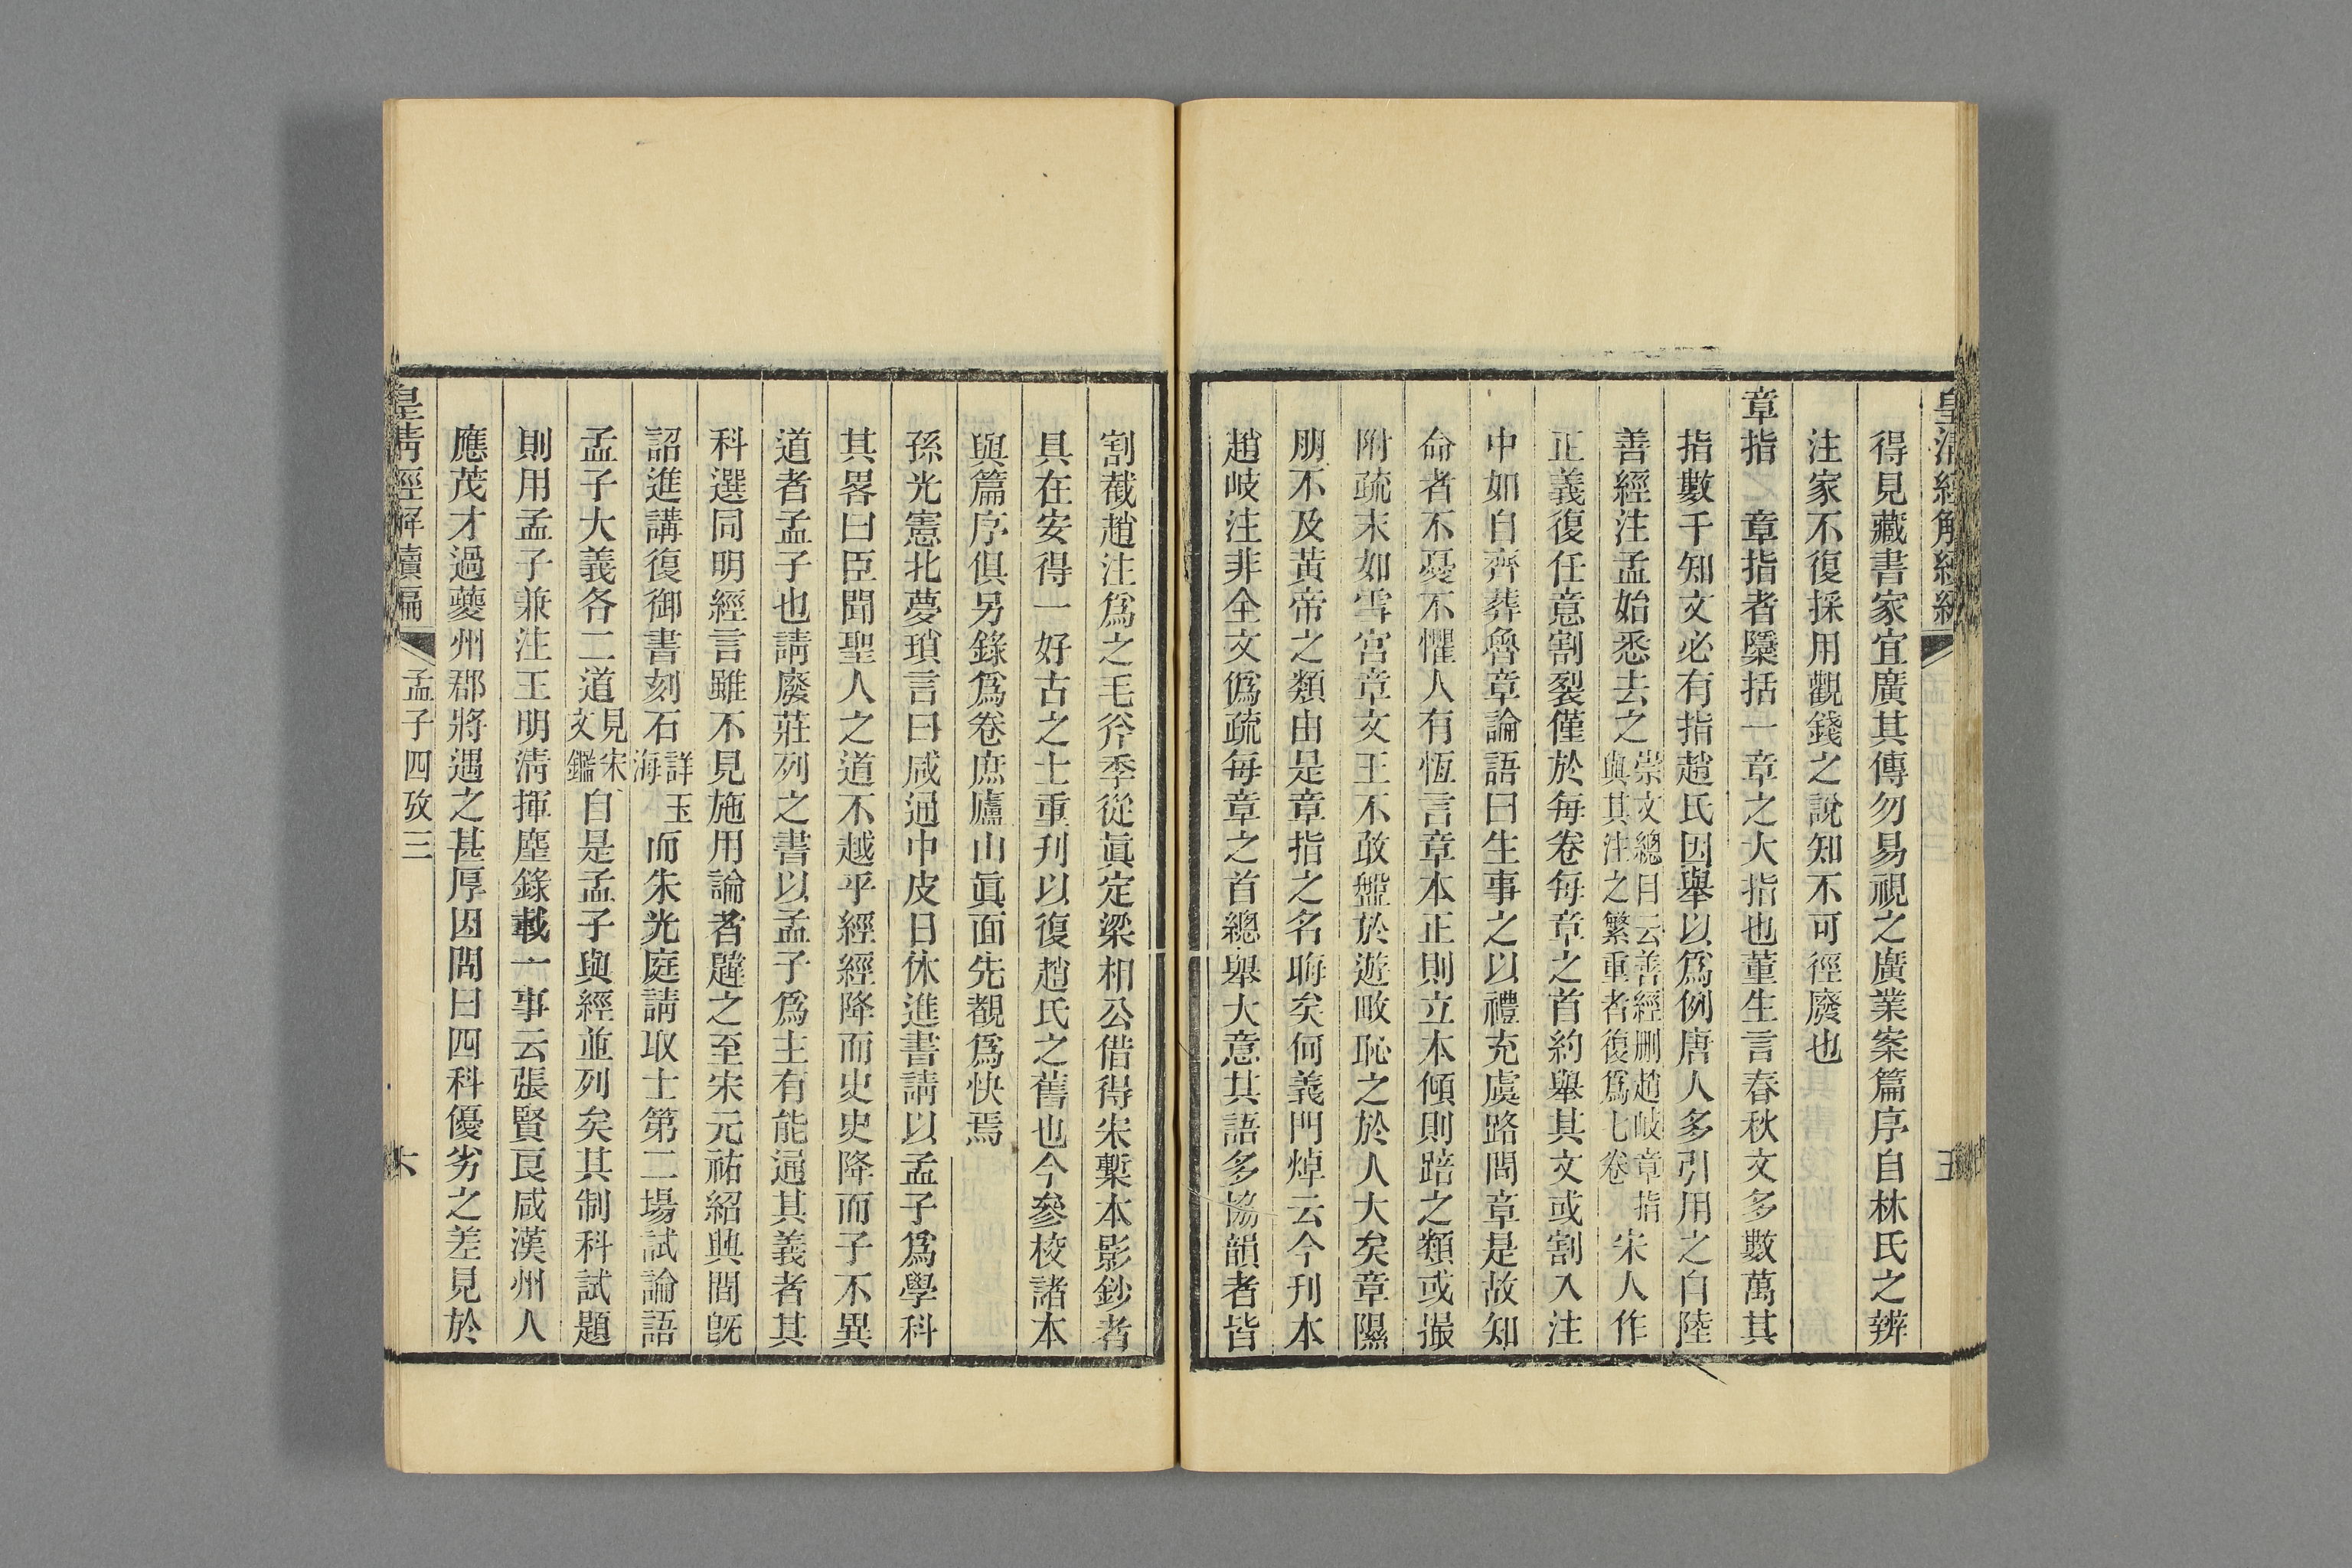 皇清經解續編
五
得見藏書家宜廣其傳勿易視之廣業案篇序自林氏之辨
注家不復採用觀錢之說知不可徑廢也
章指 章指者隱括一章之大指也董生言春秋文多數萬其
指數千知文必有指趙氏因舉以爲例唐人多引用之自陸
善經注孟始悉去之崇文總目云善經删趙岐章指與其注之繁重者復爲七卷宋人作
正義復任意割裂僅於每卷每章之首約舉其文或割入注
中如自齊葬魯章論語曰生事之以禮充虞路問章是故知
命者不憂不懼人有恆言章本正則立本傾則踣之類或撮
附疏末如雪宮章文王不敢盤於遊畋恥之於人大矣章隰
朋不及黃帝之類由是章指之名晦矣何義門焯云今刊本
趙岐注非全文僞疏每章之首總舉大意其語多協韻者皆
割截趙注爲之毛斧季從眞定梁相公借得宋槧本影鈔者
具在安得一好古之士重刊以復趙氏之舊也今參校諸本
與篇序俱另錄爲卷庶廬山眞面先覩爲快焉
孫光憲北夢瑣言曰咸通中皮日休進書請以孟子爲學科
其畧曰臣聞聖人之道不越乎經經降而史史降而子不異
道者孟子也請廢莊列之書以孟子爲主有能通其義者其
科選同明經言雖不見施用論者韙之至宋元祐紹興間旣
詔進講復御書刻石詳玉海而朱光庭請取士第二場試論語
孟子大義各二道見宋文鑑自是孟子與經並列矣其制科試題
則用孟子兼注王明清揮麈錄載一事云張賢良咸漢州人
應茂才過夔州郡將遇之甚厚因問曰四科優劣之差見於
皇清經解續編
孟子四攷三
六